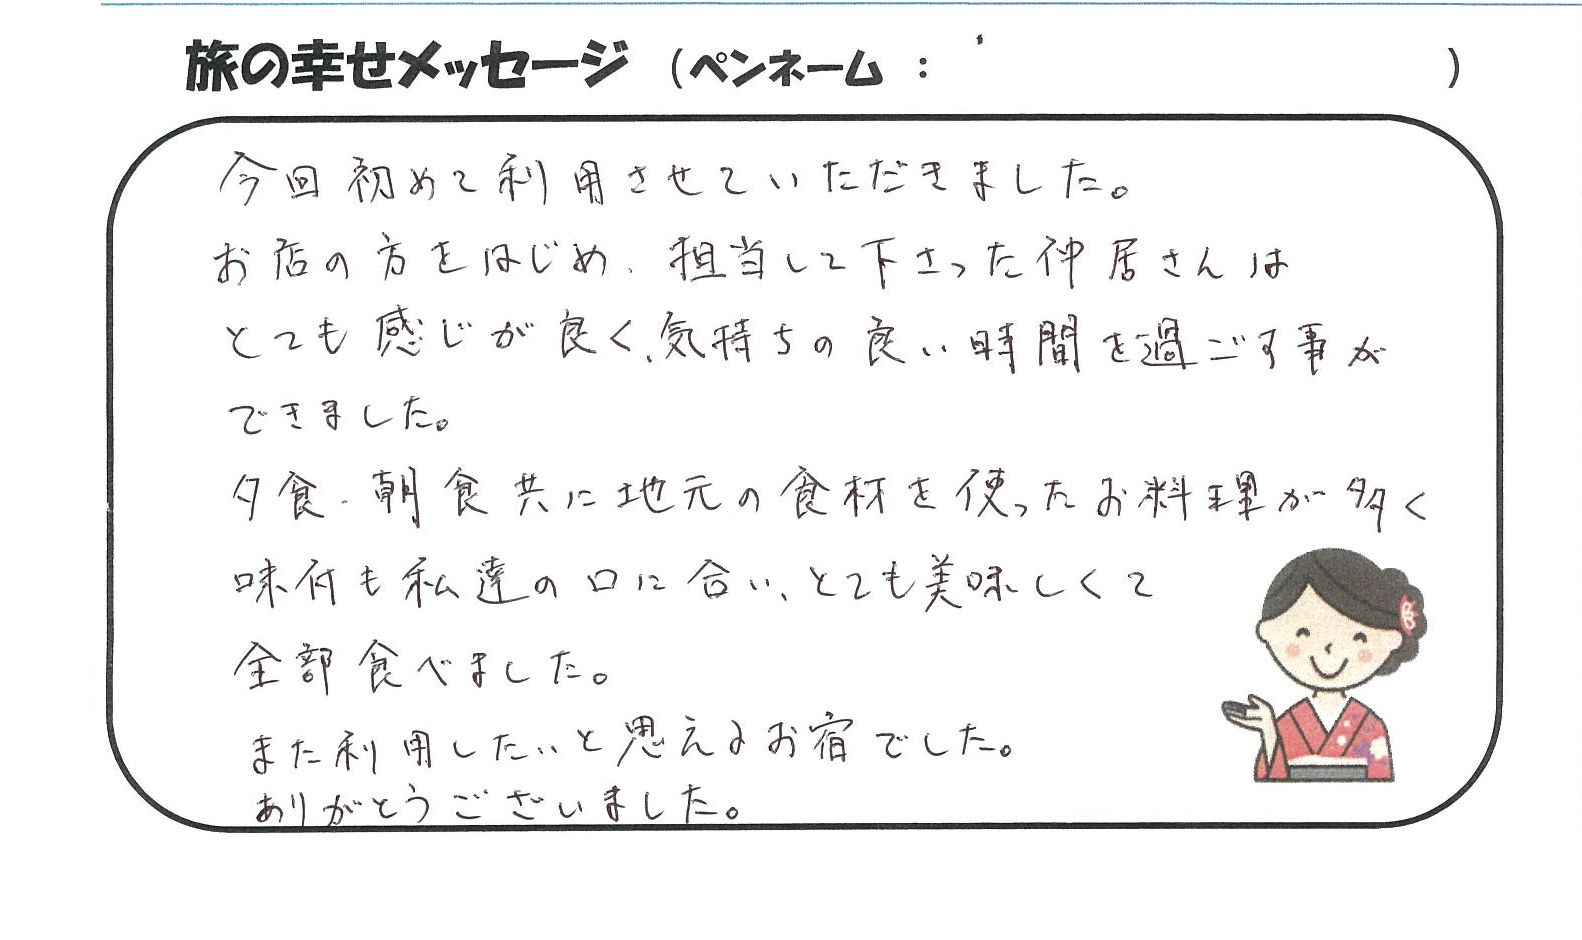 旅の幸せメッセージ （ペンネーム ： ）
今回初めて利用させていただきました。
お店の方をはじめ、担当して下さった仲居さんは
とても感じが良く、気持ちの良い時間を過ごす事が
できました。
夕食、朝食共に地元の食材を使ったお料理が多く
味付も私達の口に合い、とても美味しくて
全部食べました。
また利用したいと思えるお宿でした。
ありがとうございました。